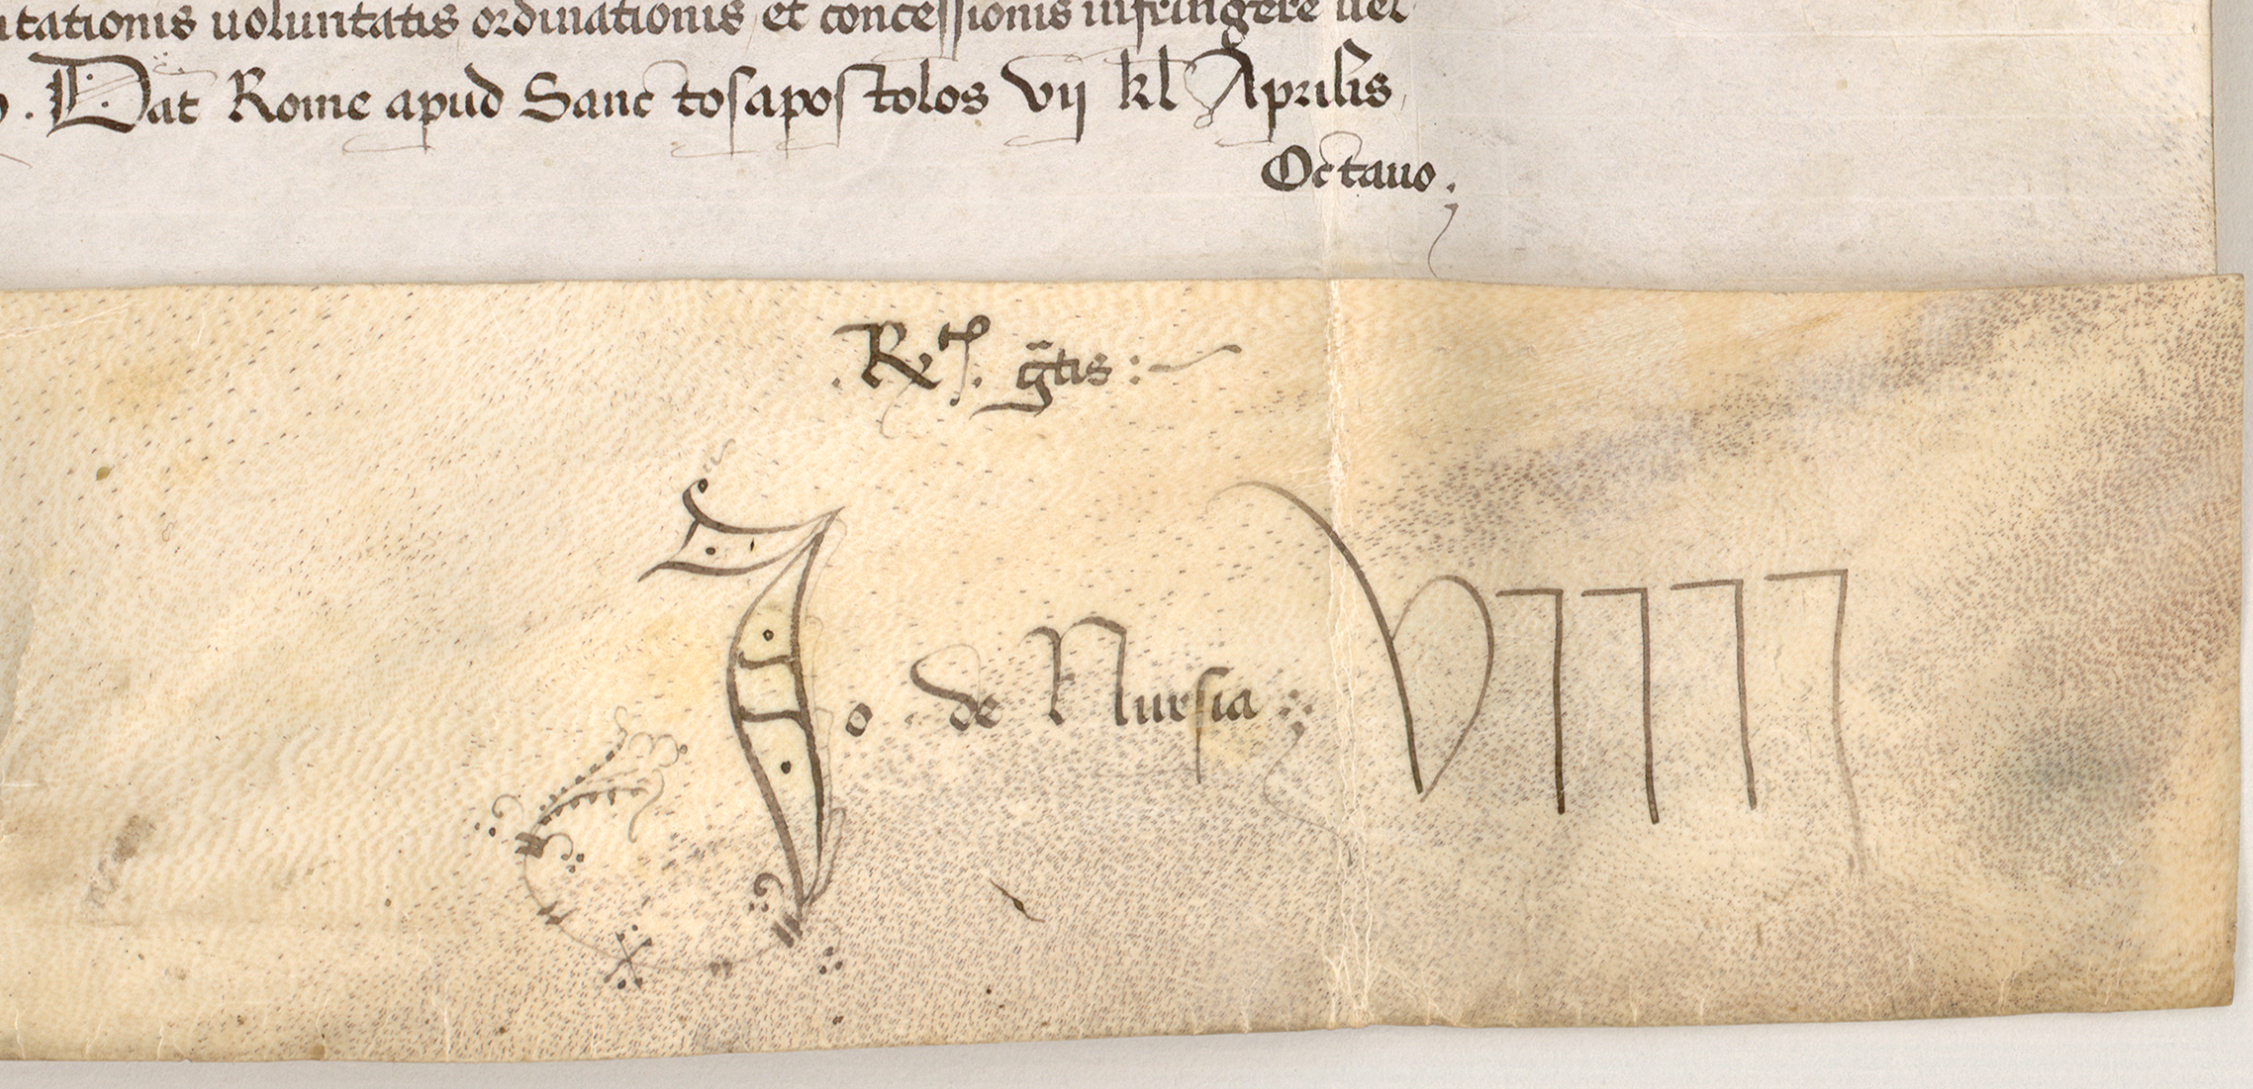 tationis uoluntatis ordinationis et concessionis infringere uel
. Dat Rome apud Sanctosapostolos vij kl Aprilis
Octauo.
.Rta. gr̄tis :
Jo. de Nursia VIIII